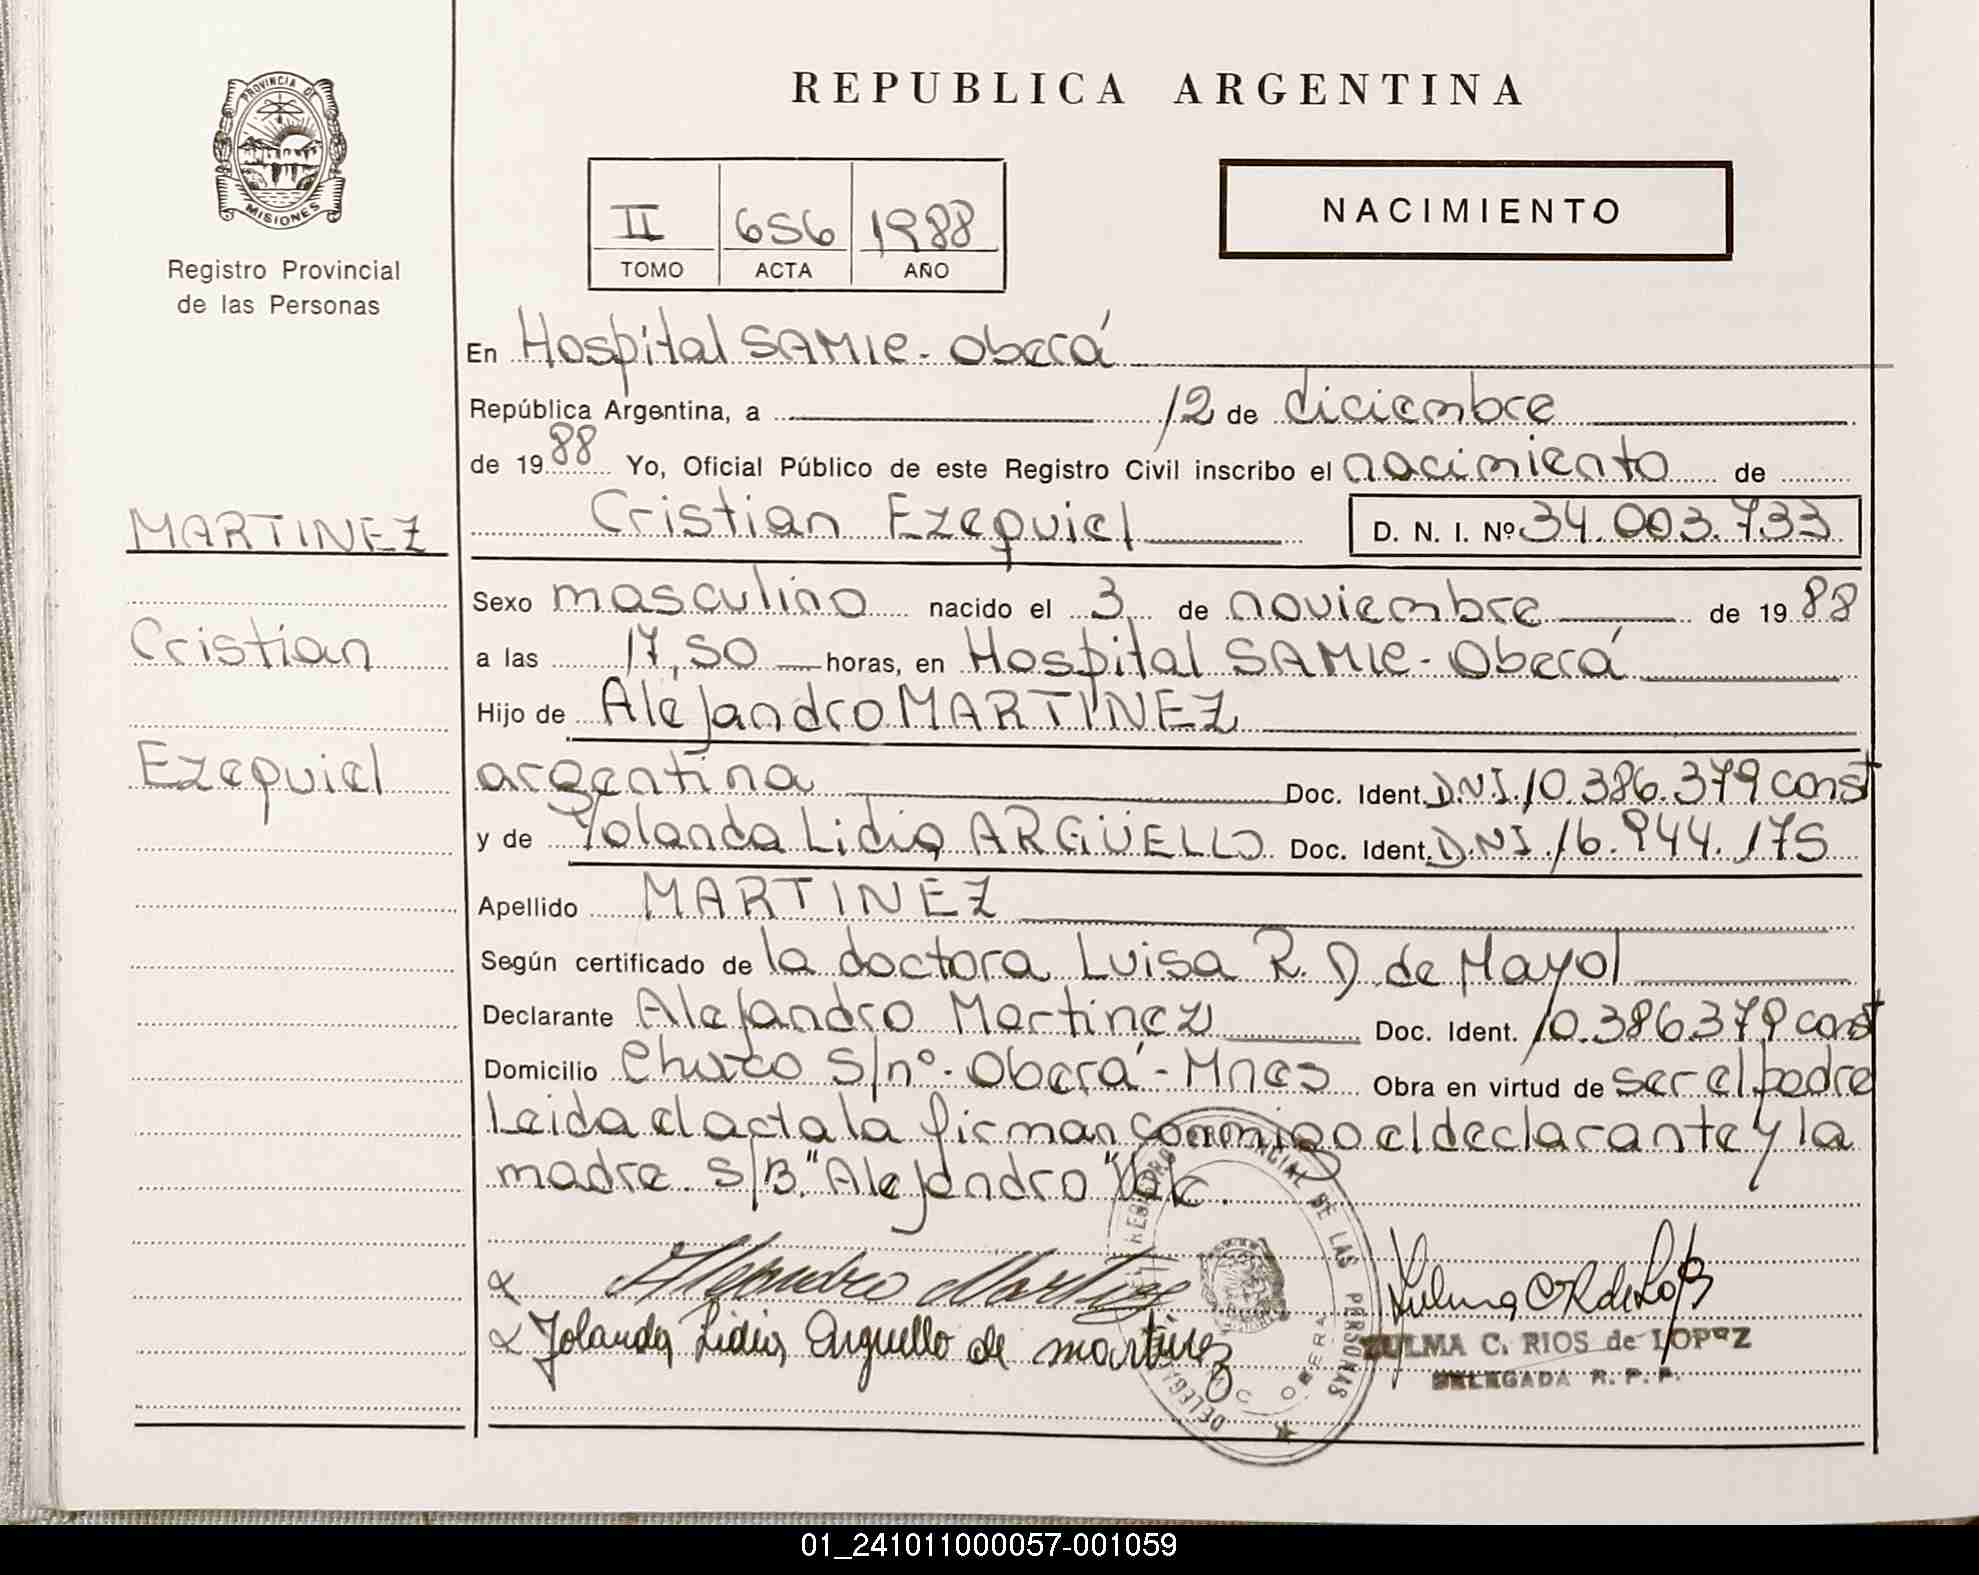 REPUBLICA ARGENTINA
PROVINCIA DE MISIONES
Registro Provincial
de las Personas
II 656 1988
TOMO ACTA AÑO
NACIMIENTO
En Hospital SAMIC - Oberá
República Argentina, a 12 de diciembre
de 1988 Yo, Oficial Público de este Registro Civil inscribo el nacimiento de
MARTINEZ
Cristian Ezequiel D. N. I. Nº 34.003.733
Sexo masculino nacido el 3 de noviembre de 1988
Cristian
a las 17,50 horas, en Hospital SAMIC - Oberá
Hijo de Alejandro MARTINEZ
Ezequiel
argentina Doc. Ident. D.N.I. 10.386.379 const
y de Yolanda Lidia ARGÜELLO Doc. Ident. D.N.I. 16.944.175
Apellido MARTINEZ
Según certificado de la doctora Luisa R. D. de Mayol
Declarante Alejandro Martinez Doc. Ident. 10.386.379 const
Domicilio Chuzo s/nº - Oberá - Mnes Obra en virtud de ser el padre
Leida el acta la firman conmigo el declarante y la
madre. S/B. "Alejandro" Vale.
Alejandro Martinez
Yolanda Lidia Arguello de martinez
REGISTRO PROVINCIAL DE LAS PERSONAS
OBERA
ZULMA C. RIOS de LOPEZ
DELEGADA R. P. P.
01_241011000057-001059